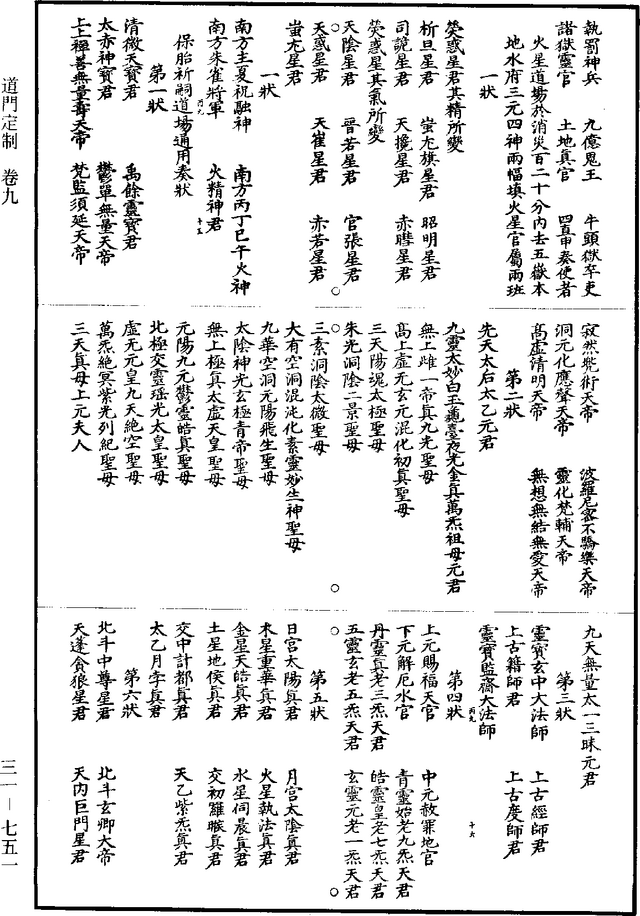 執罰神兵　九億鬼王　牛頭獄卒吏
諸獄靈官　土地真官　四直甲奏使者
火星道場於消災百二十分內去五嶽本
地水府三元四神兩幅填火星官屬兩班
一狀
熒惑星君其精所變
析旦星君　蚩尤旗星君　昭明星君
司詭星君　天攙星君　赤彗星君
熒惑星其氣所變
天陰星君　晉若星君　官張星君
天惑星君　天雀星君　赤若星君
蚩尤星君
一狀
南方主夏祝融神　南方丙丁巳午火神
南方朱雀將軍　火精神君
丙九　十五
保胎祈嗣道場通用奏狀
第一狀
清微天寶君　禹餘靈寶君
太赤神寶君　鬱單無量天帝
上上禪善無量壽天帝　梵監須延天帝
寂然兠術天帝　波羅尼密不驕樂天帝
洞元化應聲天帝　靈化梵輔天帝
高虛清明天帝　無想無結無愛天帝
第二狀
先天太后太乙元君
九靈太妙白玉龜臺夜光金真萬炁祖母元君
無上雌一帝真九光聖母
高上虛元玄元混化初真聖母
三天陽魂太極聖母
朱光洞陰二景聖母
三素洞陰太微聖母
大有空洞混沌化素靈妙生神聖母
九華空洞元陽飛生聖母
太陰神光玄極青帝聖母
無上極真太虛天皇聖母
元陽九元鬱靈皓真聖母
北極交靈瑶光太皇聖母
虛无元皇九天絕空聖母
萬炁絕冥紫光列紀聖母
三天真母上元夫人
九天無量太一三昧元君
第三狀
靈寶玄中大法師　上古經師君
上古籍師君　上古度師君
靈寶監齋大法師
丙九　十六
第四狀
上元賜福天官　中元赦罪地官
下元解厄水官　青靈始老九炁天君
丹靈真老三炁天君　皓靈皇老七炁天君
五靈玄老五炁天君　玄靈元老一炁天君
第五狀
日宮太陽真君　月宮太陰真君
木星重華真君　火星執法真君
金星天皓真君　水星伺晨真君
土星地侯真君　交初羅睺真君
交中計都真君　天乙紫炁真君
太乙月孛真君
第六狀
北斗中尊星君　北斗玄卿大帝
天蓬食狼星君　天內巨門星君
道門定制　卷九
三一—七五一